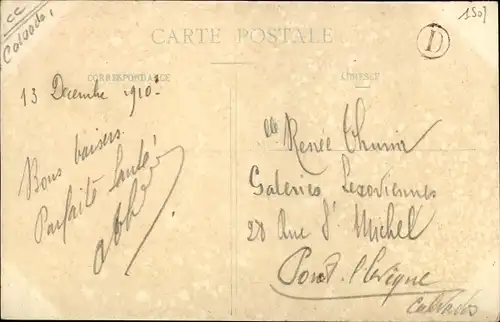 cc
Calvados,
150f
CARTE POSTALE
D
CORRESPONDANCE
ADRESSE
13 Decembre 1910.
Bons baisers.
Parfaite Santé
Mlle Renée
Galeries Lexoviennes
28 Rue St Michel
Pont-l'Evêque
Calvados